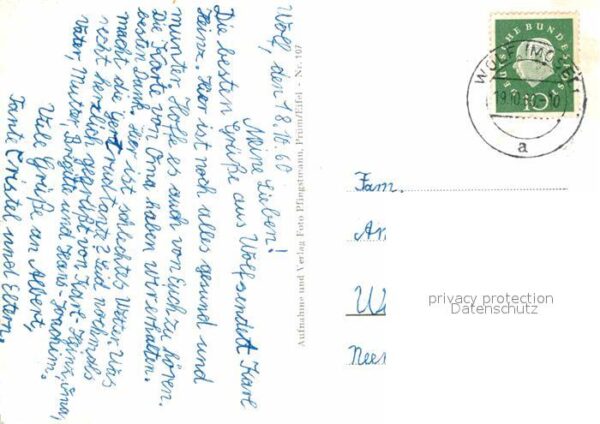 Wolf, den 18.10.60
Meine Lieben!
Die besten Grüße aus Wolf sendet Karl
Heinz. Hier ist noch alles gesund und
munter. Hoffe es auch von Euch zu hören.
Die Karte von Oma haben wir erhalten.
besten Dank. Hier ist schlechtes Wetter. Was
macht die Seid nochmals
recht herzlich gegrüßt von Karl-Heinz, Oma,
Vater, Mutter, Brigitte und Hans-Joachim.
Viele Grüße an Albert,
Tante Cristel und Eltern.
Aufnahme und Verlag Foto Pfingstmann, Prüm/Eifel - Nr. 107
DEUTSCHE BUNDESPOST
10
WOLF (MOSEL)
19.10.60-10
a
Fam.
privacy protection
Datenschutz